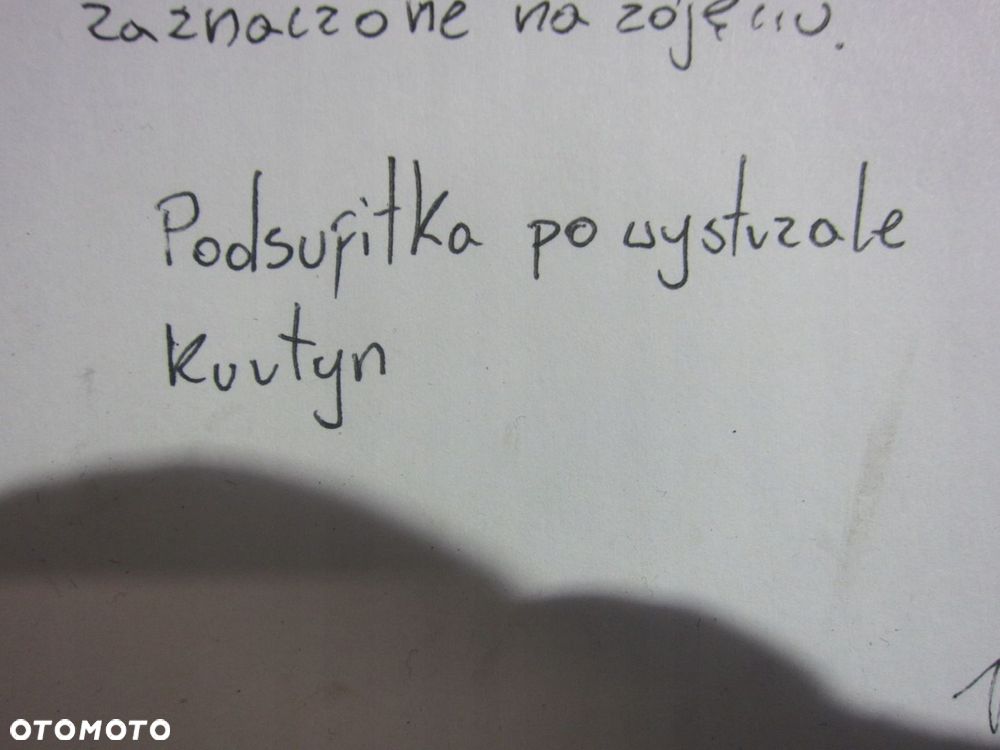 zaznaczone na zdjęciu.
Podsufitka po wystrzale
kurtyn
OTOMOTO